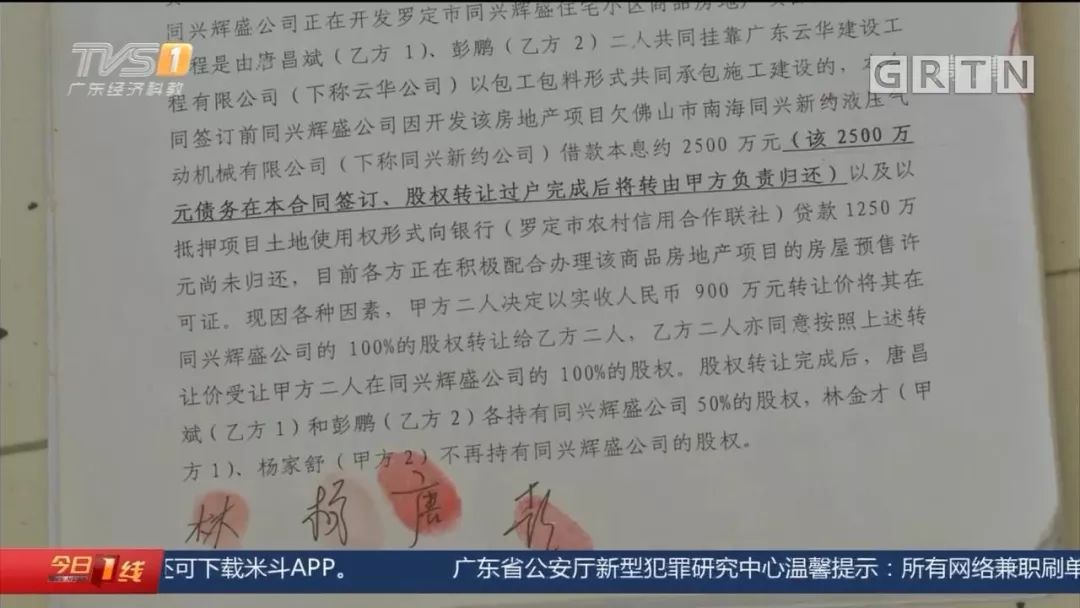 同兴辉盛公司正在开发罗定市同兴辉盛住宅小区商品房地产项目
程是由唐昌斌（乙方 1）、彭鹏（乙方 2）二人共同挂靠广东云华建设工
程有限公司（下称云华公司）以包工包料形式共同承包施工建设的，
同签订前同兴辉盛公司因开发该房地产项目欠佛山市南海同兴新约液压气
动机械有限公司（下称同兴新约公司）借款本息约 2500 万元（该 2500 万
元债务在本合同签订、股权转让过户完成后将转由甲方负责归还）以及以
抵押项目土地使用权形式向银行（罗定市农村信用合作联社）贷款 1250 万
元尚未归还，目前各方正在积极配合办理该商品房地产项目的房屋预售许
可证。现因各种因素，甲方二人决定以实收人民币 900 万元转让价将其在
同兴辉盛公司的 100%的股权转让给乙方二人，乙方二人亦同意按照上述转
让价受让甲方二人在同兴辉盛公司的 100%的股权。股权转让完成后，唐昌
斌（乙方 1）和彭鹏（乙方 2）各持有同兴辉盛公司 50%的股权，林金才（甲
方 1）、杨家舒（甲方 2）不再持有同兴辉盛公司的股权。
林 杨 唐 彭
TVS1
广东经济科教
GRTN
今日1线
还可下载米斗APP。 广东省公安厅新型犯罪研究中心温馨提示：所有网络兼职刷单